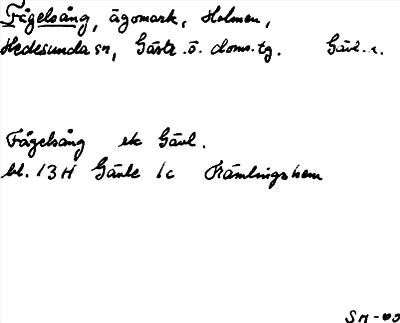 Fågelsång, ägomark, Holmen,
Hedesunda sn, Gästr. ö. doms. tg. Gävl. l.
Fågelsång ek Gävl.
bl. 13H Gävle 1c Främlingshem
SM-00